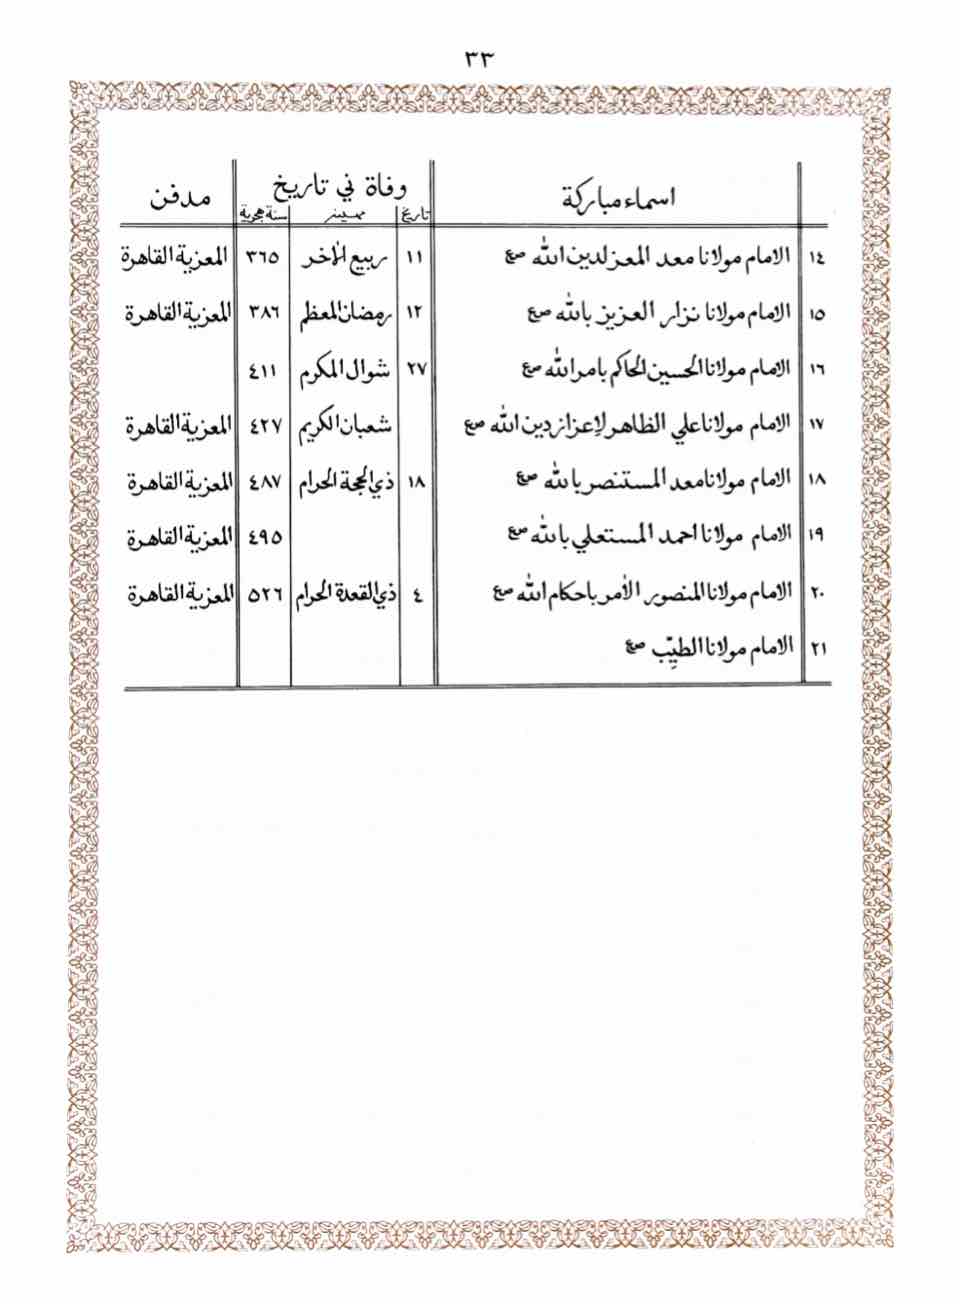 ٣٣
اسماء مباركة وفاة في تاريخ مدفن
تاريخ مہینہ سنة هجرية
١٤ الامام مولانا معد المعز لدين الله صع ١١ ربيع الآخر ٣٦٥ المعزية القاهرة
١٥ الامام مولانا نزار العزيز بالله صع ١٢ رمضان المعظم ٣٨٦ المعزية القاهرة
١٦ الامام مولانا الحسين الحاكم بامر الله صع ٢٧ شوال المكرم ٤١١
١٧ الامام مولانا علي الظاهر لاعزاز دين الله صع شعبان الكريم ٤٢٧ المعزية القاهرة
١٨ الامام مولانا معد المستنصر بالله صع ١٨ ذي الحجة الحرام ٤٨٧ المعزية القاهرة
١٩ الامام مولانا احمد المستعلي بالله صع ٤٩٥ المعزية القاهرة
٢٠ الامام مولانا المنصور الآمر باحكام الله صع ٤ ذي القعدة الحرام ٥٢٦ المعزية القاهرة
٢١ الامام مولانا الطيّب صع